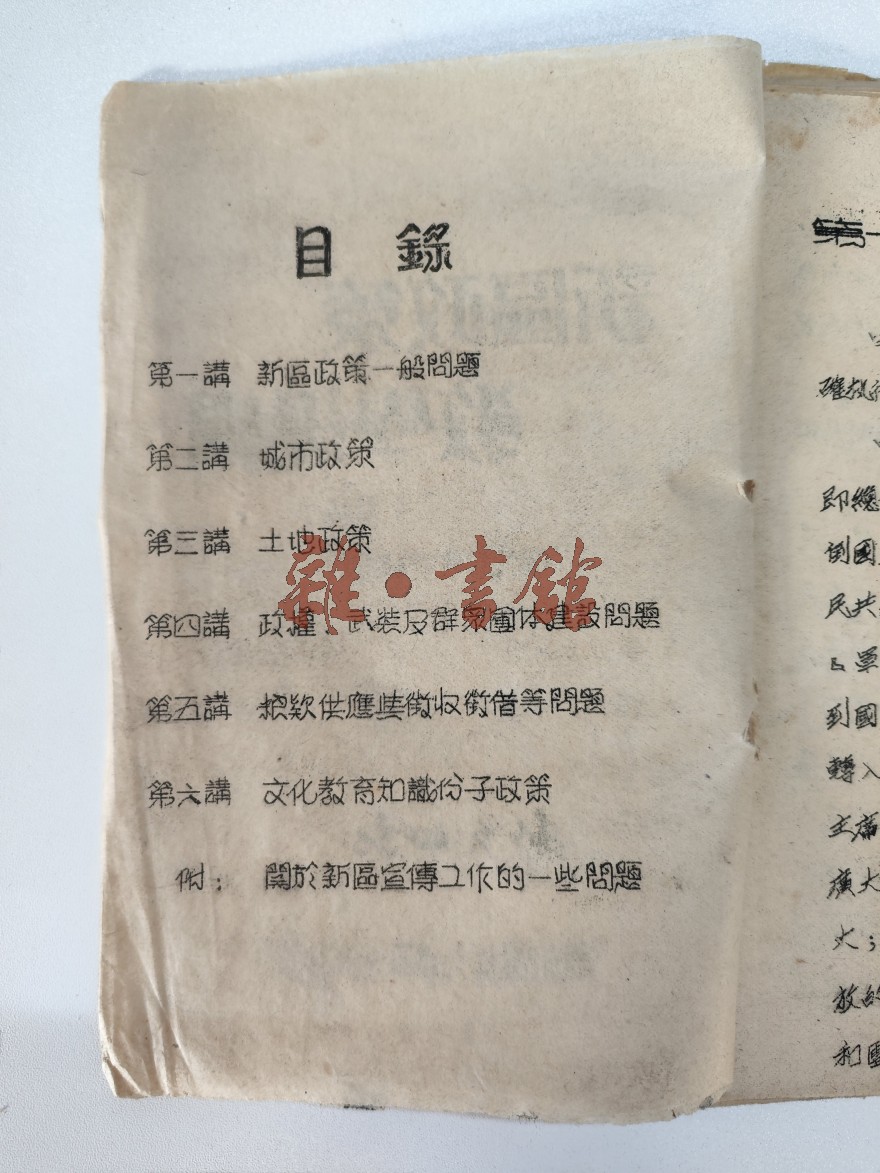 目錄
第一講 新區政策一般問題
第二講 城市政策
第三講 土地政策
第四講 政權、武装及群眾團体建設問題
第五講 供應 徵收徵借等問題
第六講 文化教育知識份子政策
附: 關於新區宣傳工作的一些問題
雜·書館
第一
確执
即總
倒國
民共
軍
到國
轉入
主席
廣大
大;
放的
和國